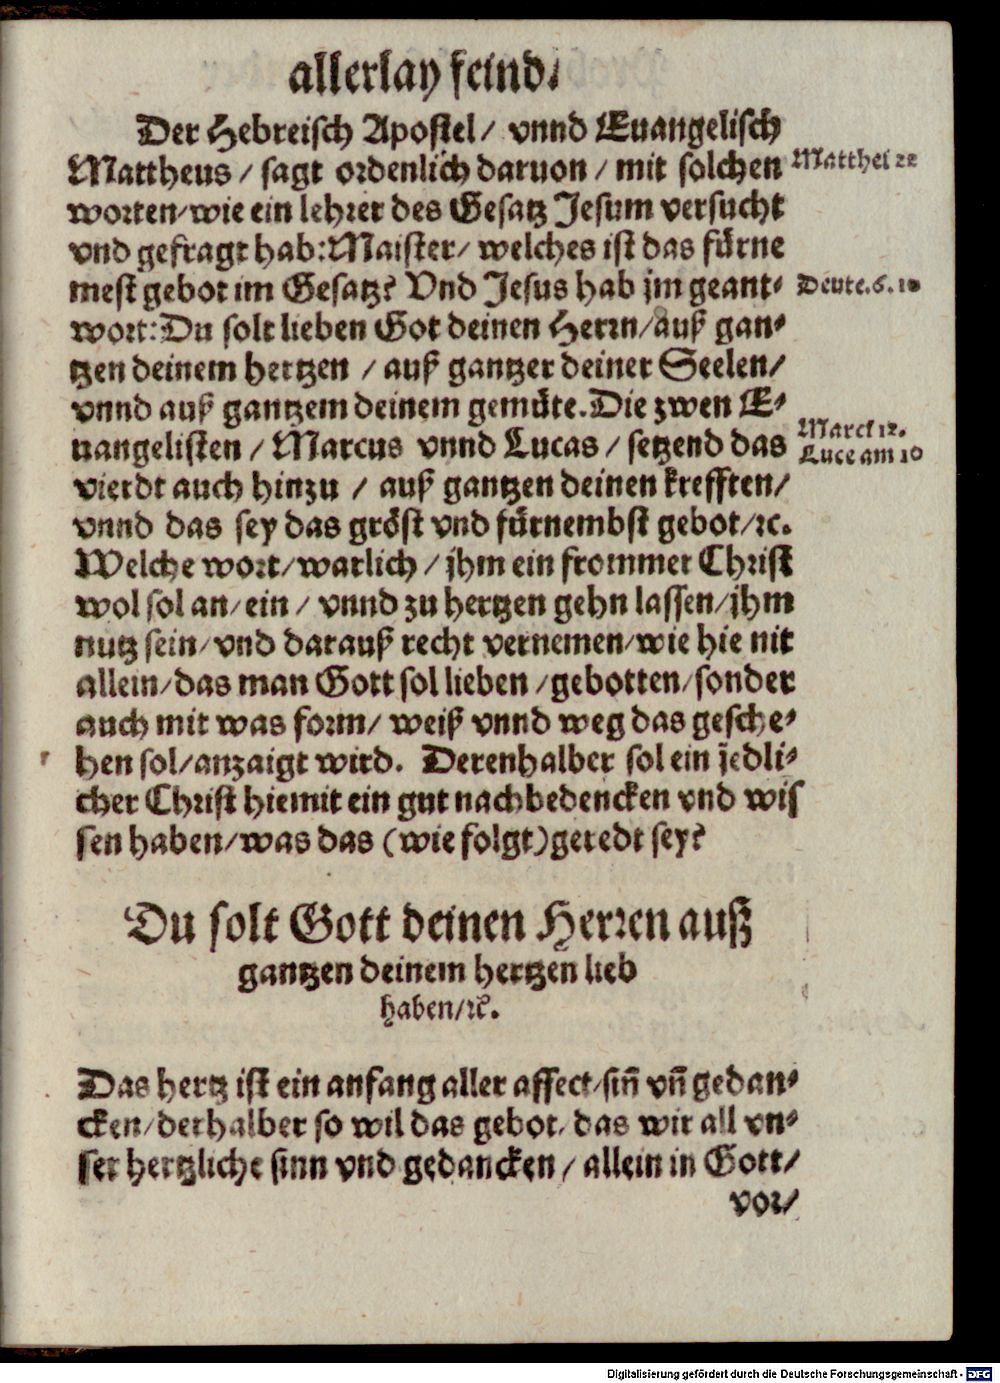 allerlay feind.
Der Hebreisch Apostel/ vnnd Euangelisch
Mattheus/ sagt ordenlich daruon/ mit solchen
Matthei 22
worten/wie ein lehrer des Gesatz Jesum versucht
vnd gefragt hab:Maister/ welches ist das fürne
mest gebot im Gesatz? Vnd Jesus hab jm geant-
Deute.6.10
wort:Du solt lieben Got deinen Herrn/auß gan-
tzen deinem hertzen /auß gantzer deiner Seelen/
vnnd auß gantzem deinem gemüte.Die zwen E-
uangelisten/ Marcus vnnd Lucas/ setzend das
Marck 12.
Luce am 10
vierdt auch hinzu/ auß gantzen deinen krefften/
vnnd das sey das gröst vnd fürnembst gebot/ꝛc.
Welche wort/warlich/jhm ein frommer Christ
wol sol an/ein/ vnnd zu hertzen gehn lassen/jhm
nutz sein/vnd darauß recht vernemen/wie hie nit
allein/das man Gott sol lieben/gebotten/sonder
auch mit was form/ weiß vnnd weg das gesche-
hen sol/anzaigt wird. Derenhalber sol ein jedli-
cher Christ hiemit ein gut nachbedencken vnd wis
sen haben/was das (wie folgt)geredt sey?
Du solt Gott deinen Herren auß
gantzen deinem hertzen lieb
haben/ꝛc.
Das hertz ist ein anfang aller affect/sin̄ vn̄ gedan-
cken/derhalber so wil das gebot/das wir all vn-
ser hertzliche sinn vnd gedancken/ allein in Gott/
vor/
Digitalisierung gefördert durch die Deutsche Forschungsgemeinschaft - DFG